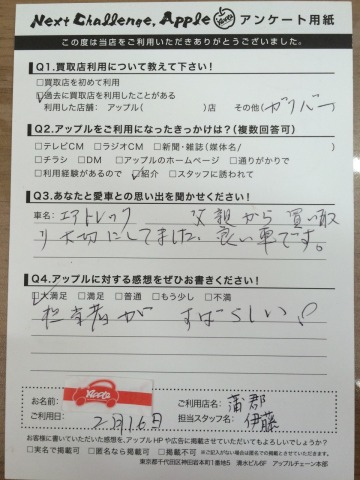 Next Challenge, Apple アンケート用紙
この度は当店をご利用いただきありがとうございました。
Q1.買取店利用について教えて下さい!
□買取店を初めて利用
□過去に買取店を利用したことがある
利用した店舗: アップル( )店 その他(ガリバー
Q2.アップルをご利用になったきっかけは?(複数回答可)
□テレビCM □ラジオCM □新聞・雑誌(媒体名/ )
□チラシ □DM □アップルのホームページ □通りがかりで
□利用経験があるので □紹介 □スタッフに誘われて
Q3.あなたと愛車との思い出を聞かせください!
車名: エアトレック 父親から買い取
り大切にしてました。良い車です。
Q4.アップルに対する感想をぜひお書きください!
□大満足 □満足 □普通 □もう少し □不満
担当者が すばらしい!
お名前: Apple ご利用店名: 蒲郡
ご利用日: 2月16日 担当スタッフ名: 伊藤
お客様に書いていただいた感想を、アップルHPや広告に掲載させていただいてもよろしいでしょうか?
□実名で掲載可 □匿名なら掲載可 □掲載不可 ※ご記入がない場合は匿名で掲載させていただきますので、ご了承ください。
東京都千代田区神田岩本町1番地5 清水ビル6F アップルチェーン本部